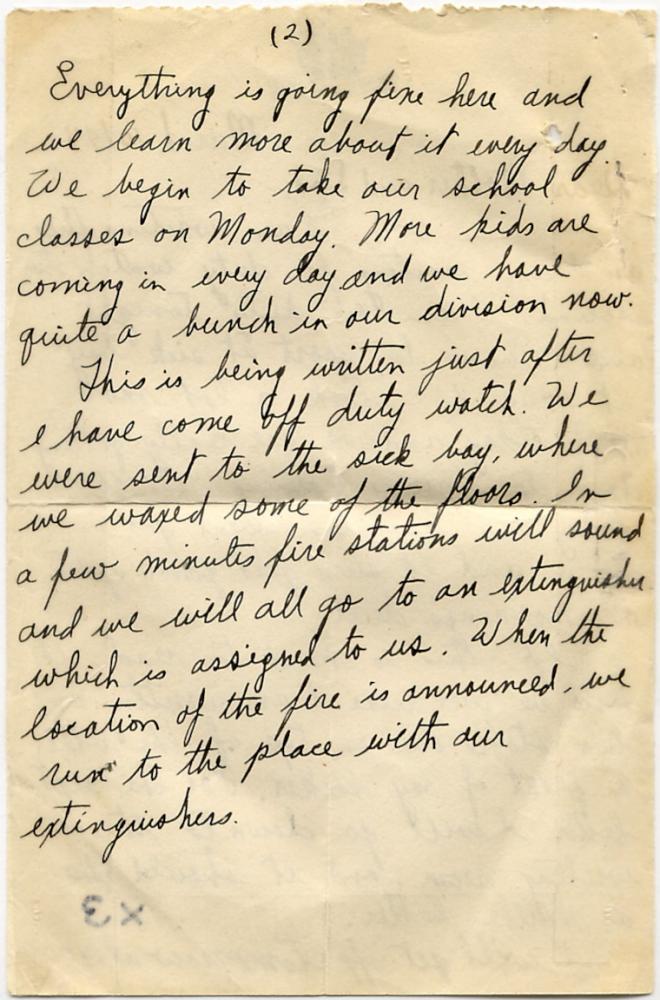 (2)
Everything is going fine here and
we learn more about it every day.
We begin to take our school
classes on Monday. More kids are
coming in every day and we have
quite a bunch in our division now.
This is being written just after
I have come off duty watch. We
were sent to the sick bay, where
we waxed some of the floors. In
a few minutes fire stations will sound
and we will all go to an extinguisher
which is assigned to us. When the
location of the fire is announced, we
run to the place with our
extinguishers.
x3